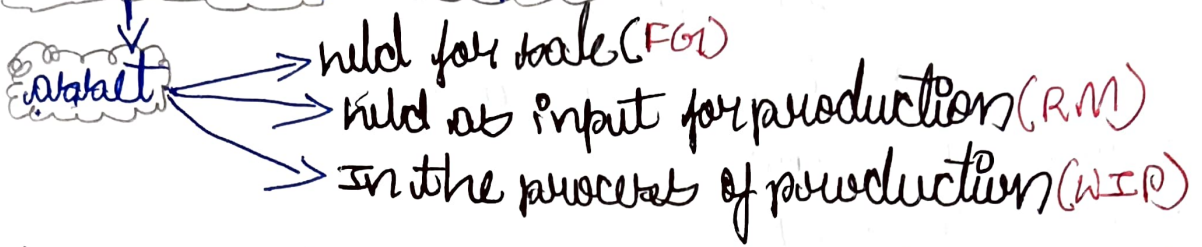 held for sale (FG)
asset
held as input for production (RM)
In the process of production (WIP)